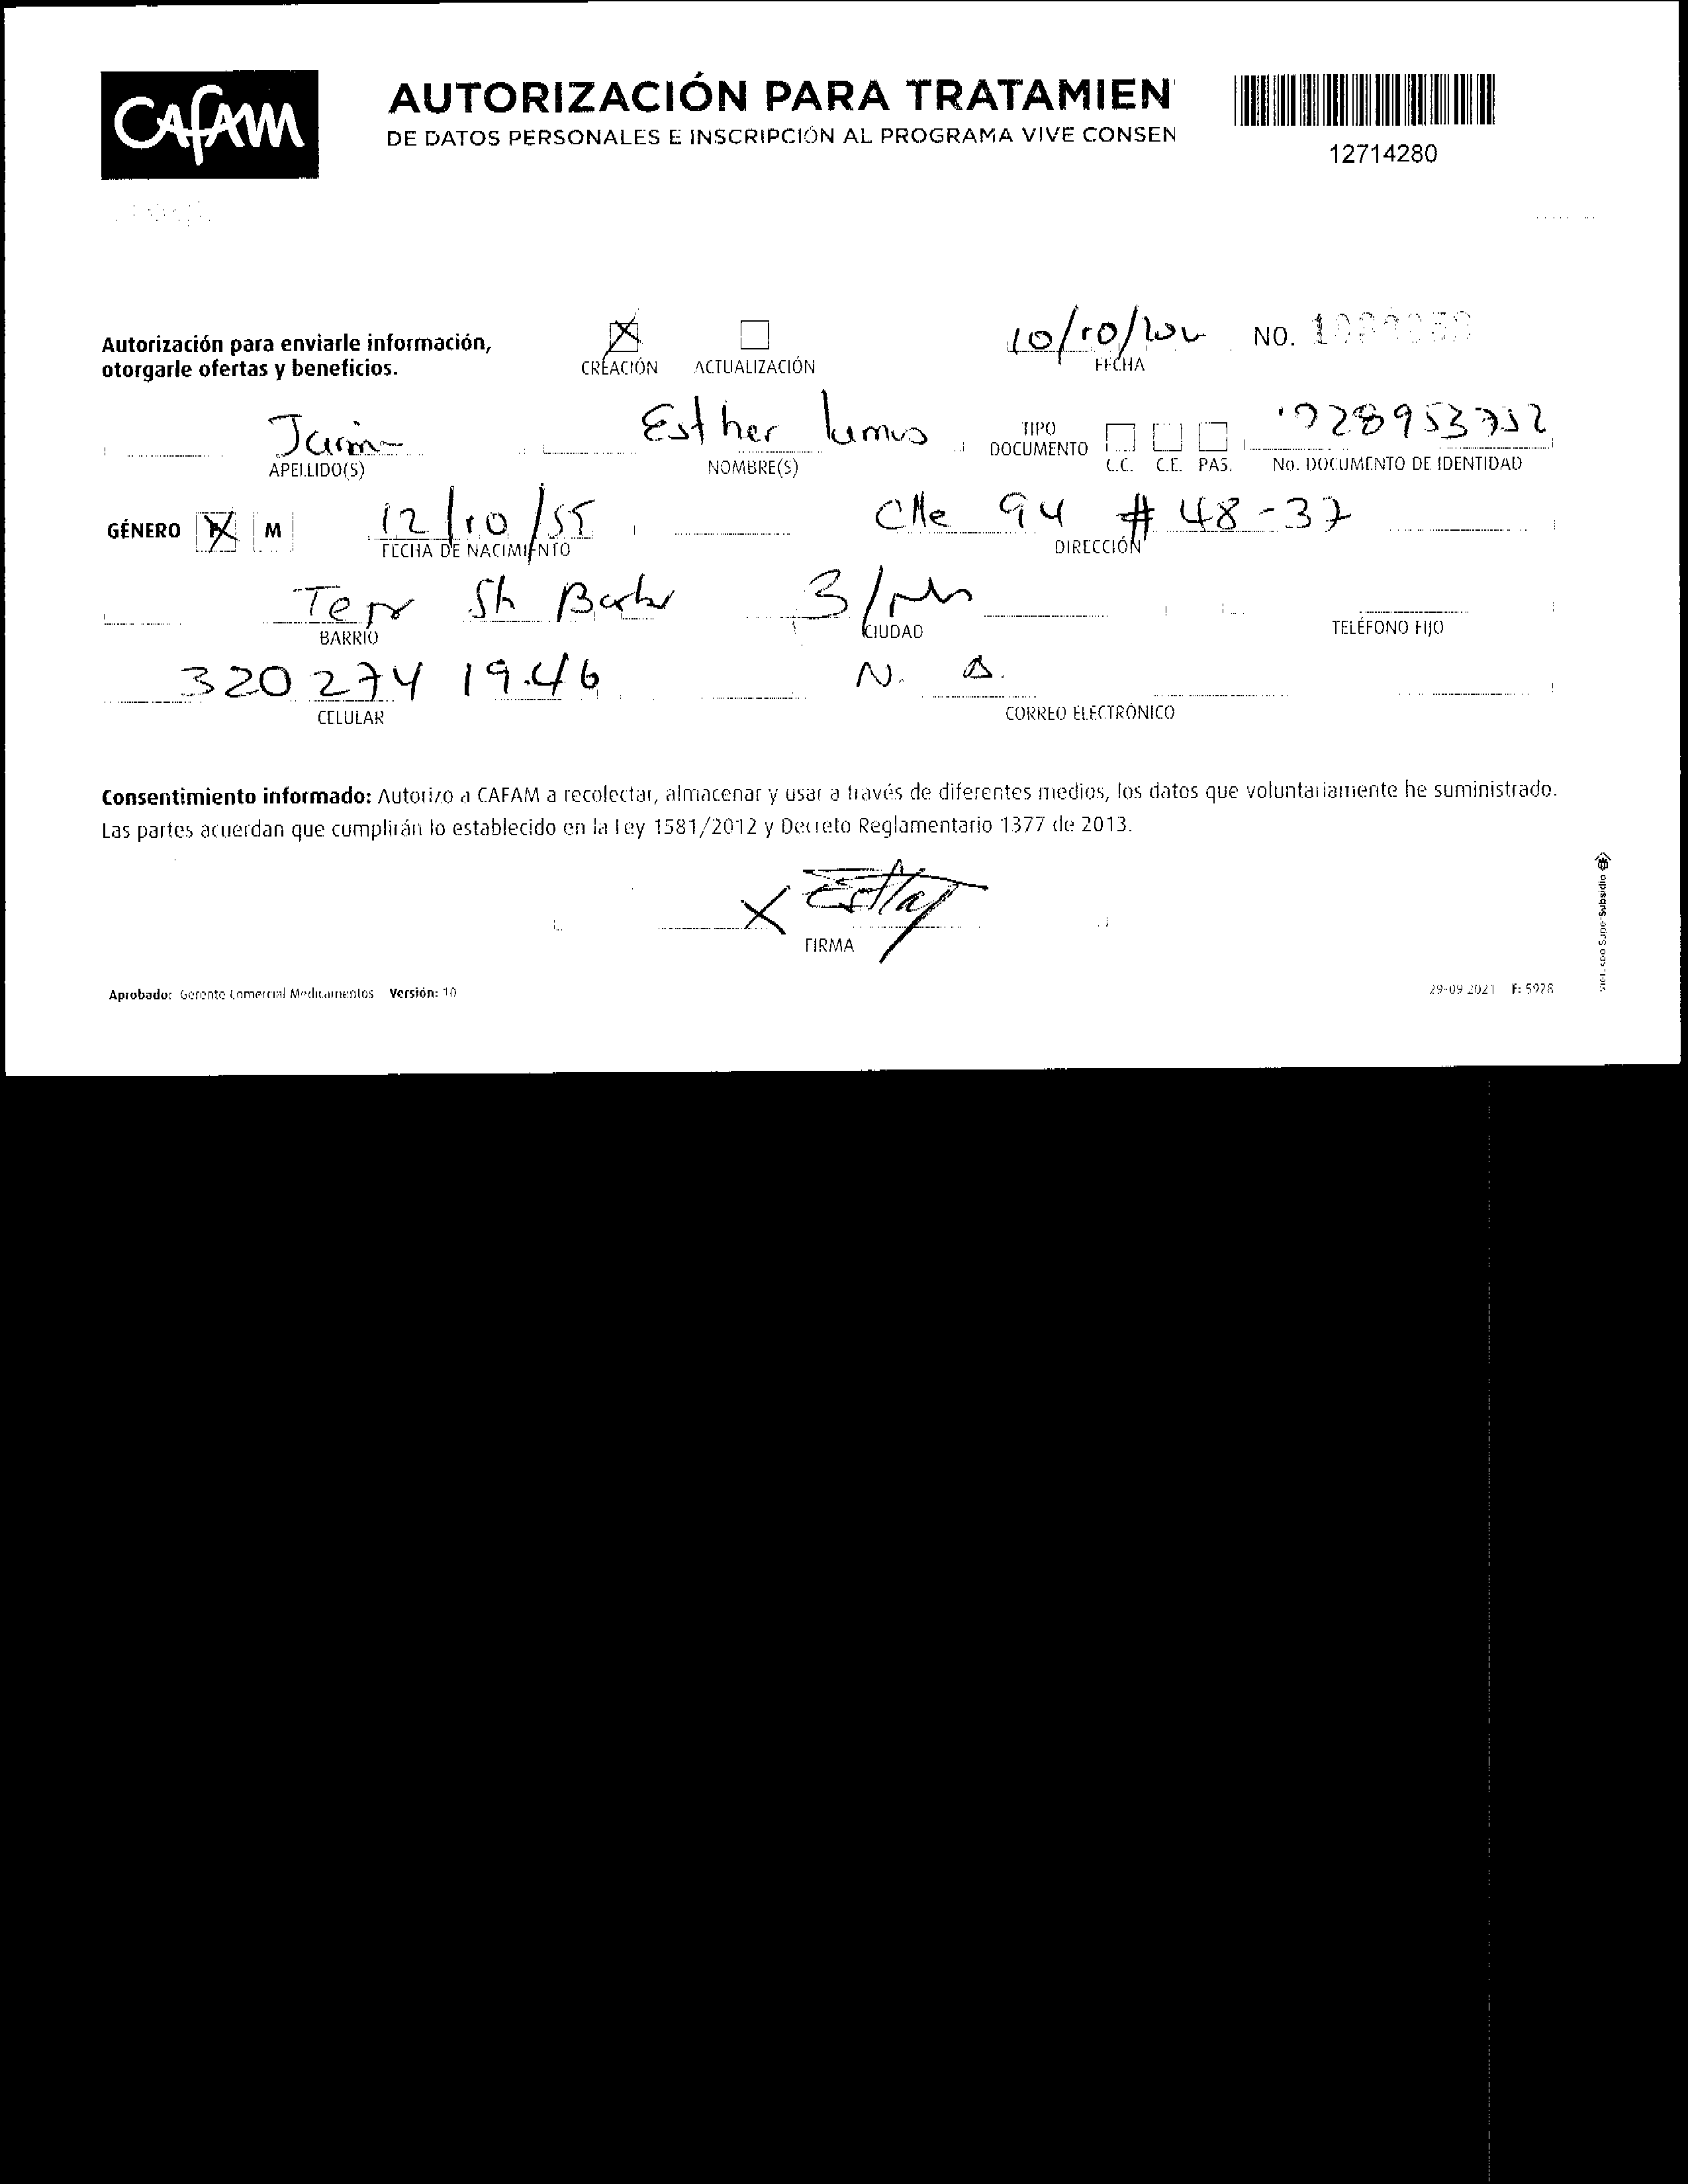 CAFAM
AUTORIZACIÓN PARA TRATAMIEN
DE DATOS PERSONALES E INSCRIPCIÓN AL PROGRAMA VIVE CONSEN
12714280
Autorización para enviarle información,
otorgarle ofertas y beneficios.
CREACIÓN ACTUALIZACIÓN
10/10/202
FECHA
NO.
Esther lemus
APELLIDO(S)
NOMBRE(S)
TIPO
DOCUMENTO
C.C. C.E. PAS.
28953752
No. DOCUMENTO DE IDENTIDAD
GÉNERO F M
12/10/55
FECHA DE NACIMIENTO
Clle 94 # 48-37
DIRECCIÓN
BARRIO
CIUDAD
TELÉFONO FIJO
320 274 19.46
CELULAR
N. A.
CORREO ELECTRÓNICO
Consentimiento informado: Autorizo a CAFAM a recolectar, almacenar y usar a través de diferentes medios, los datos que voluntariamente he suministrado.
Las partes acuerdan que cumplirán lo establecido en la ley 1581/2012 y Decreto Reglamentario 1377 de 2013.
X
FIRMA
Aprobado: Gerente Comercial Medicamentos Versión: 10
29-09 2021 F: 5928
SuperSubsidio